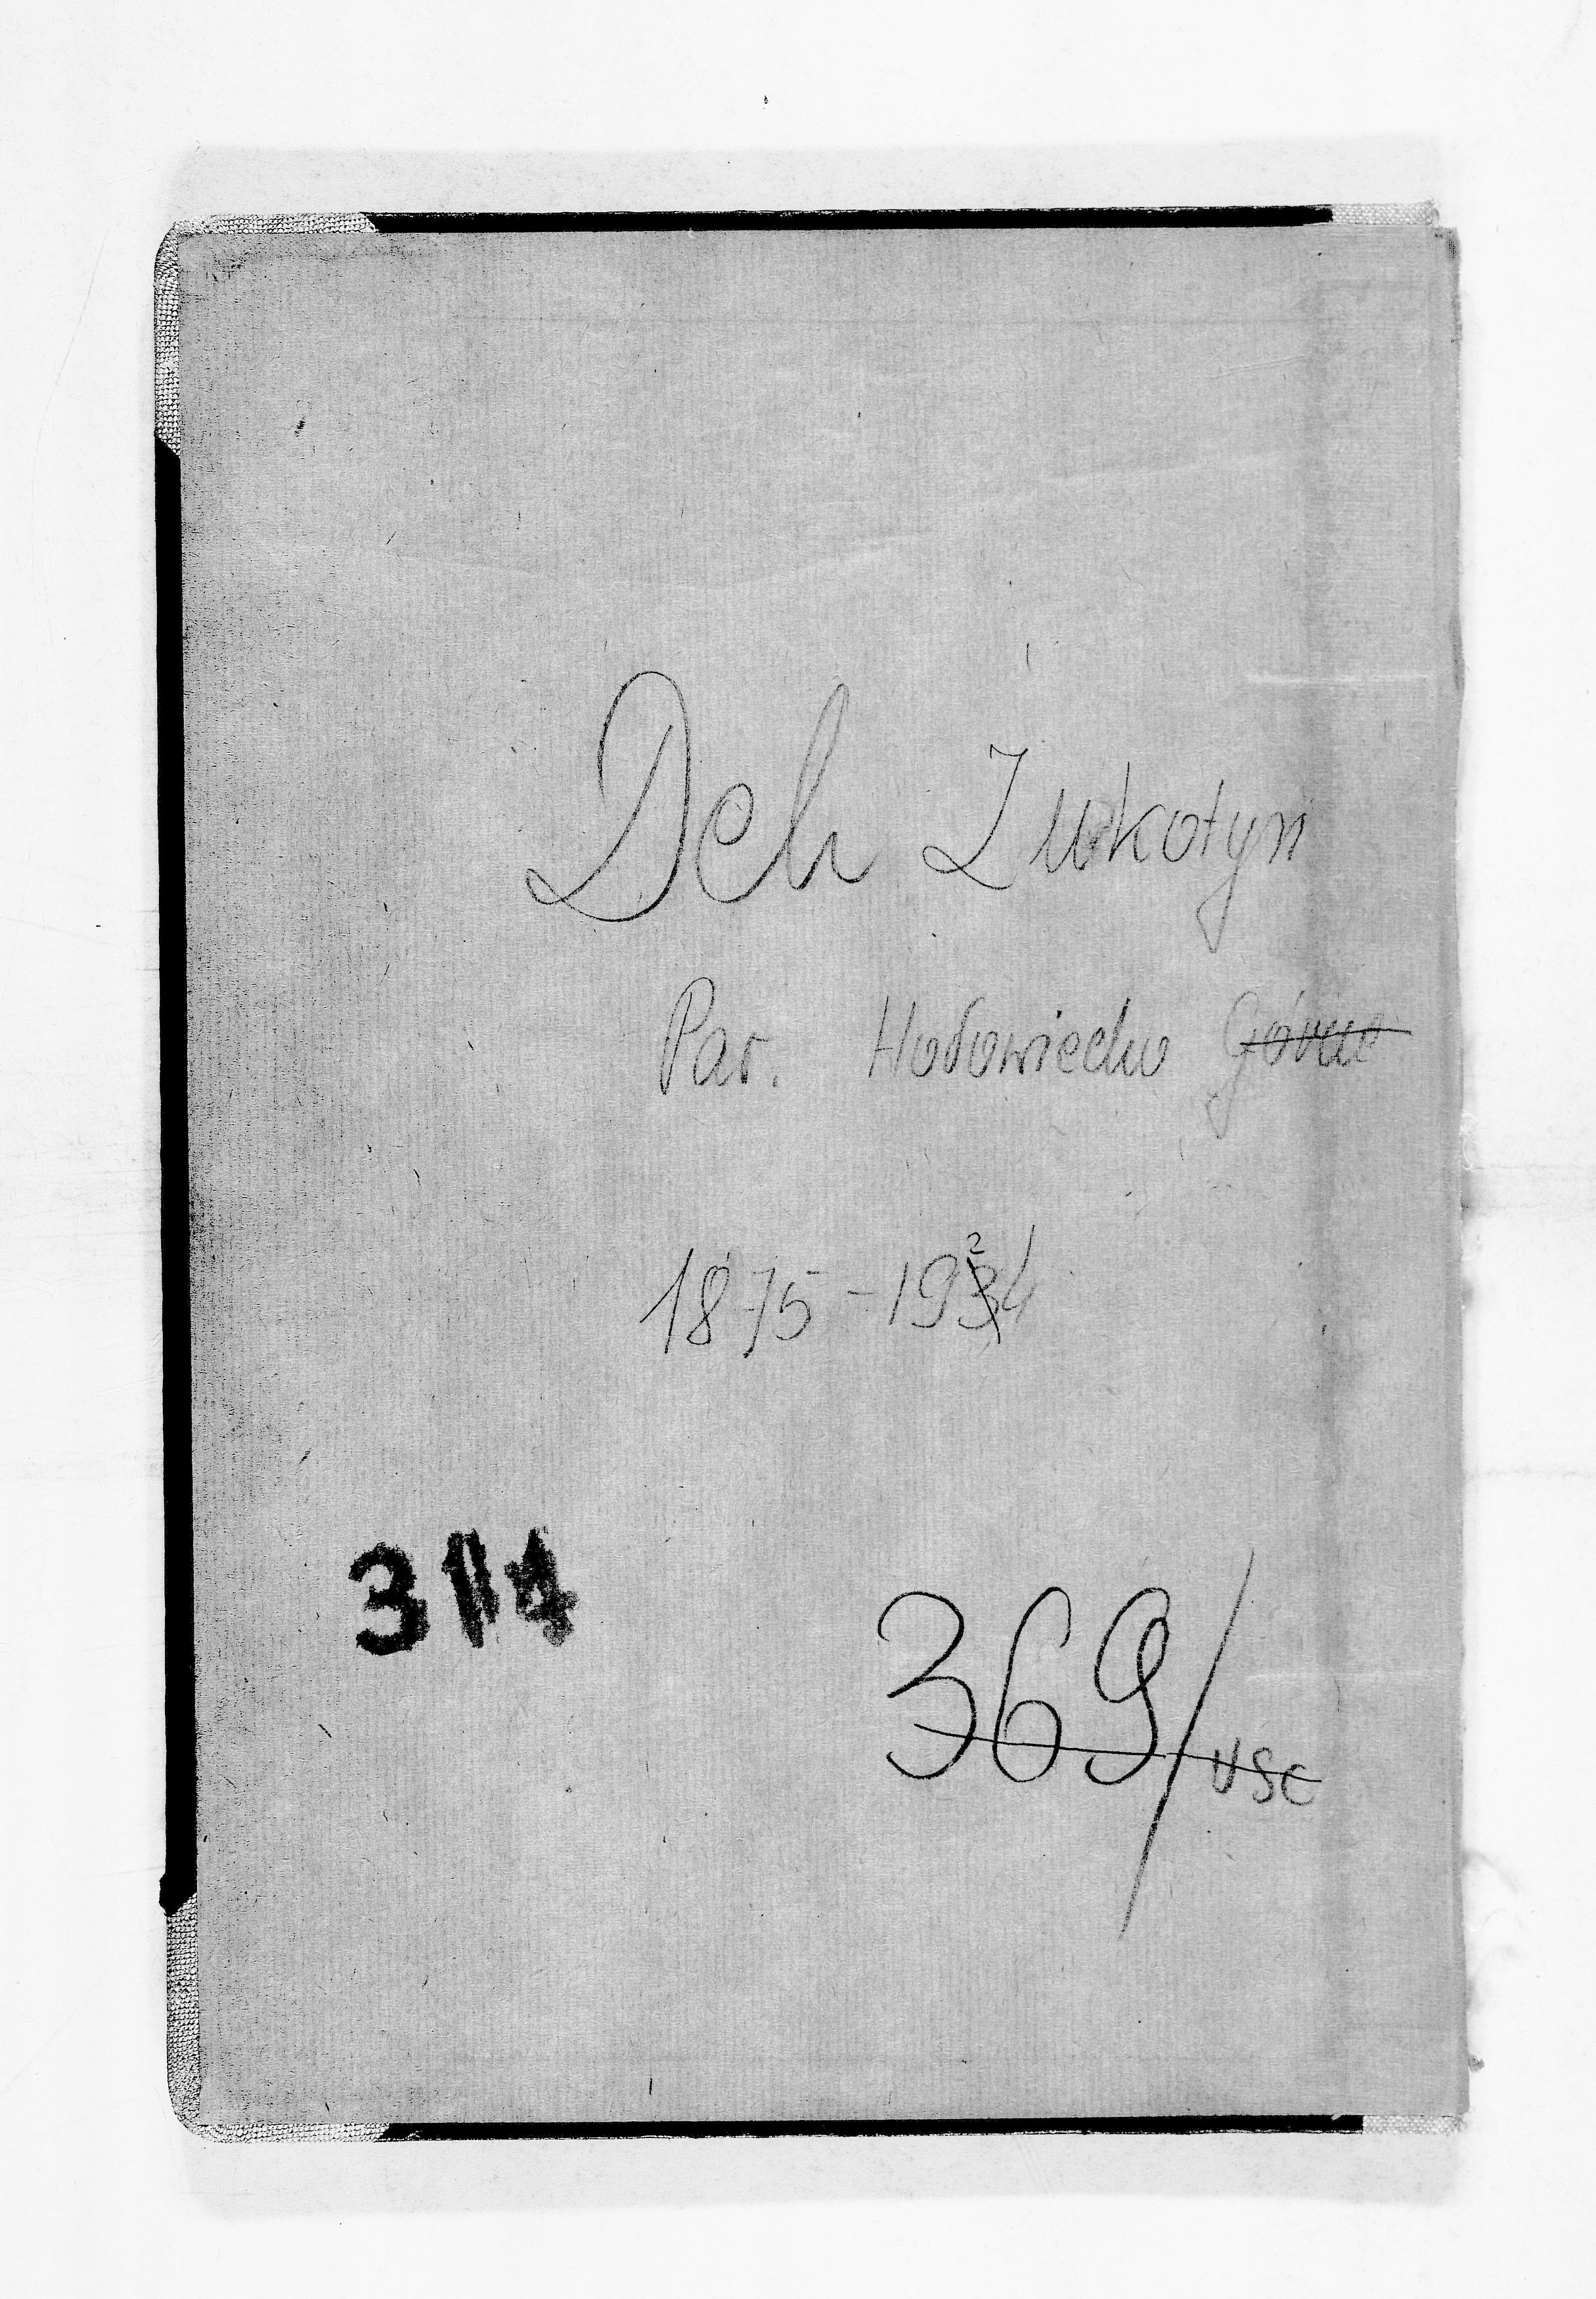 Deh Żukotyn
Par. Hołowiecko Górne
1875-19324
314
369/USC